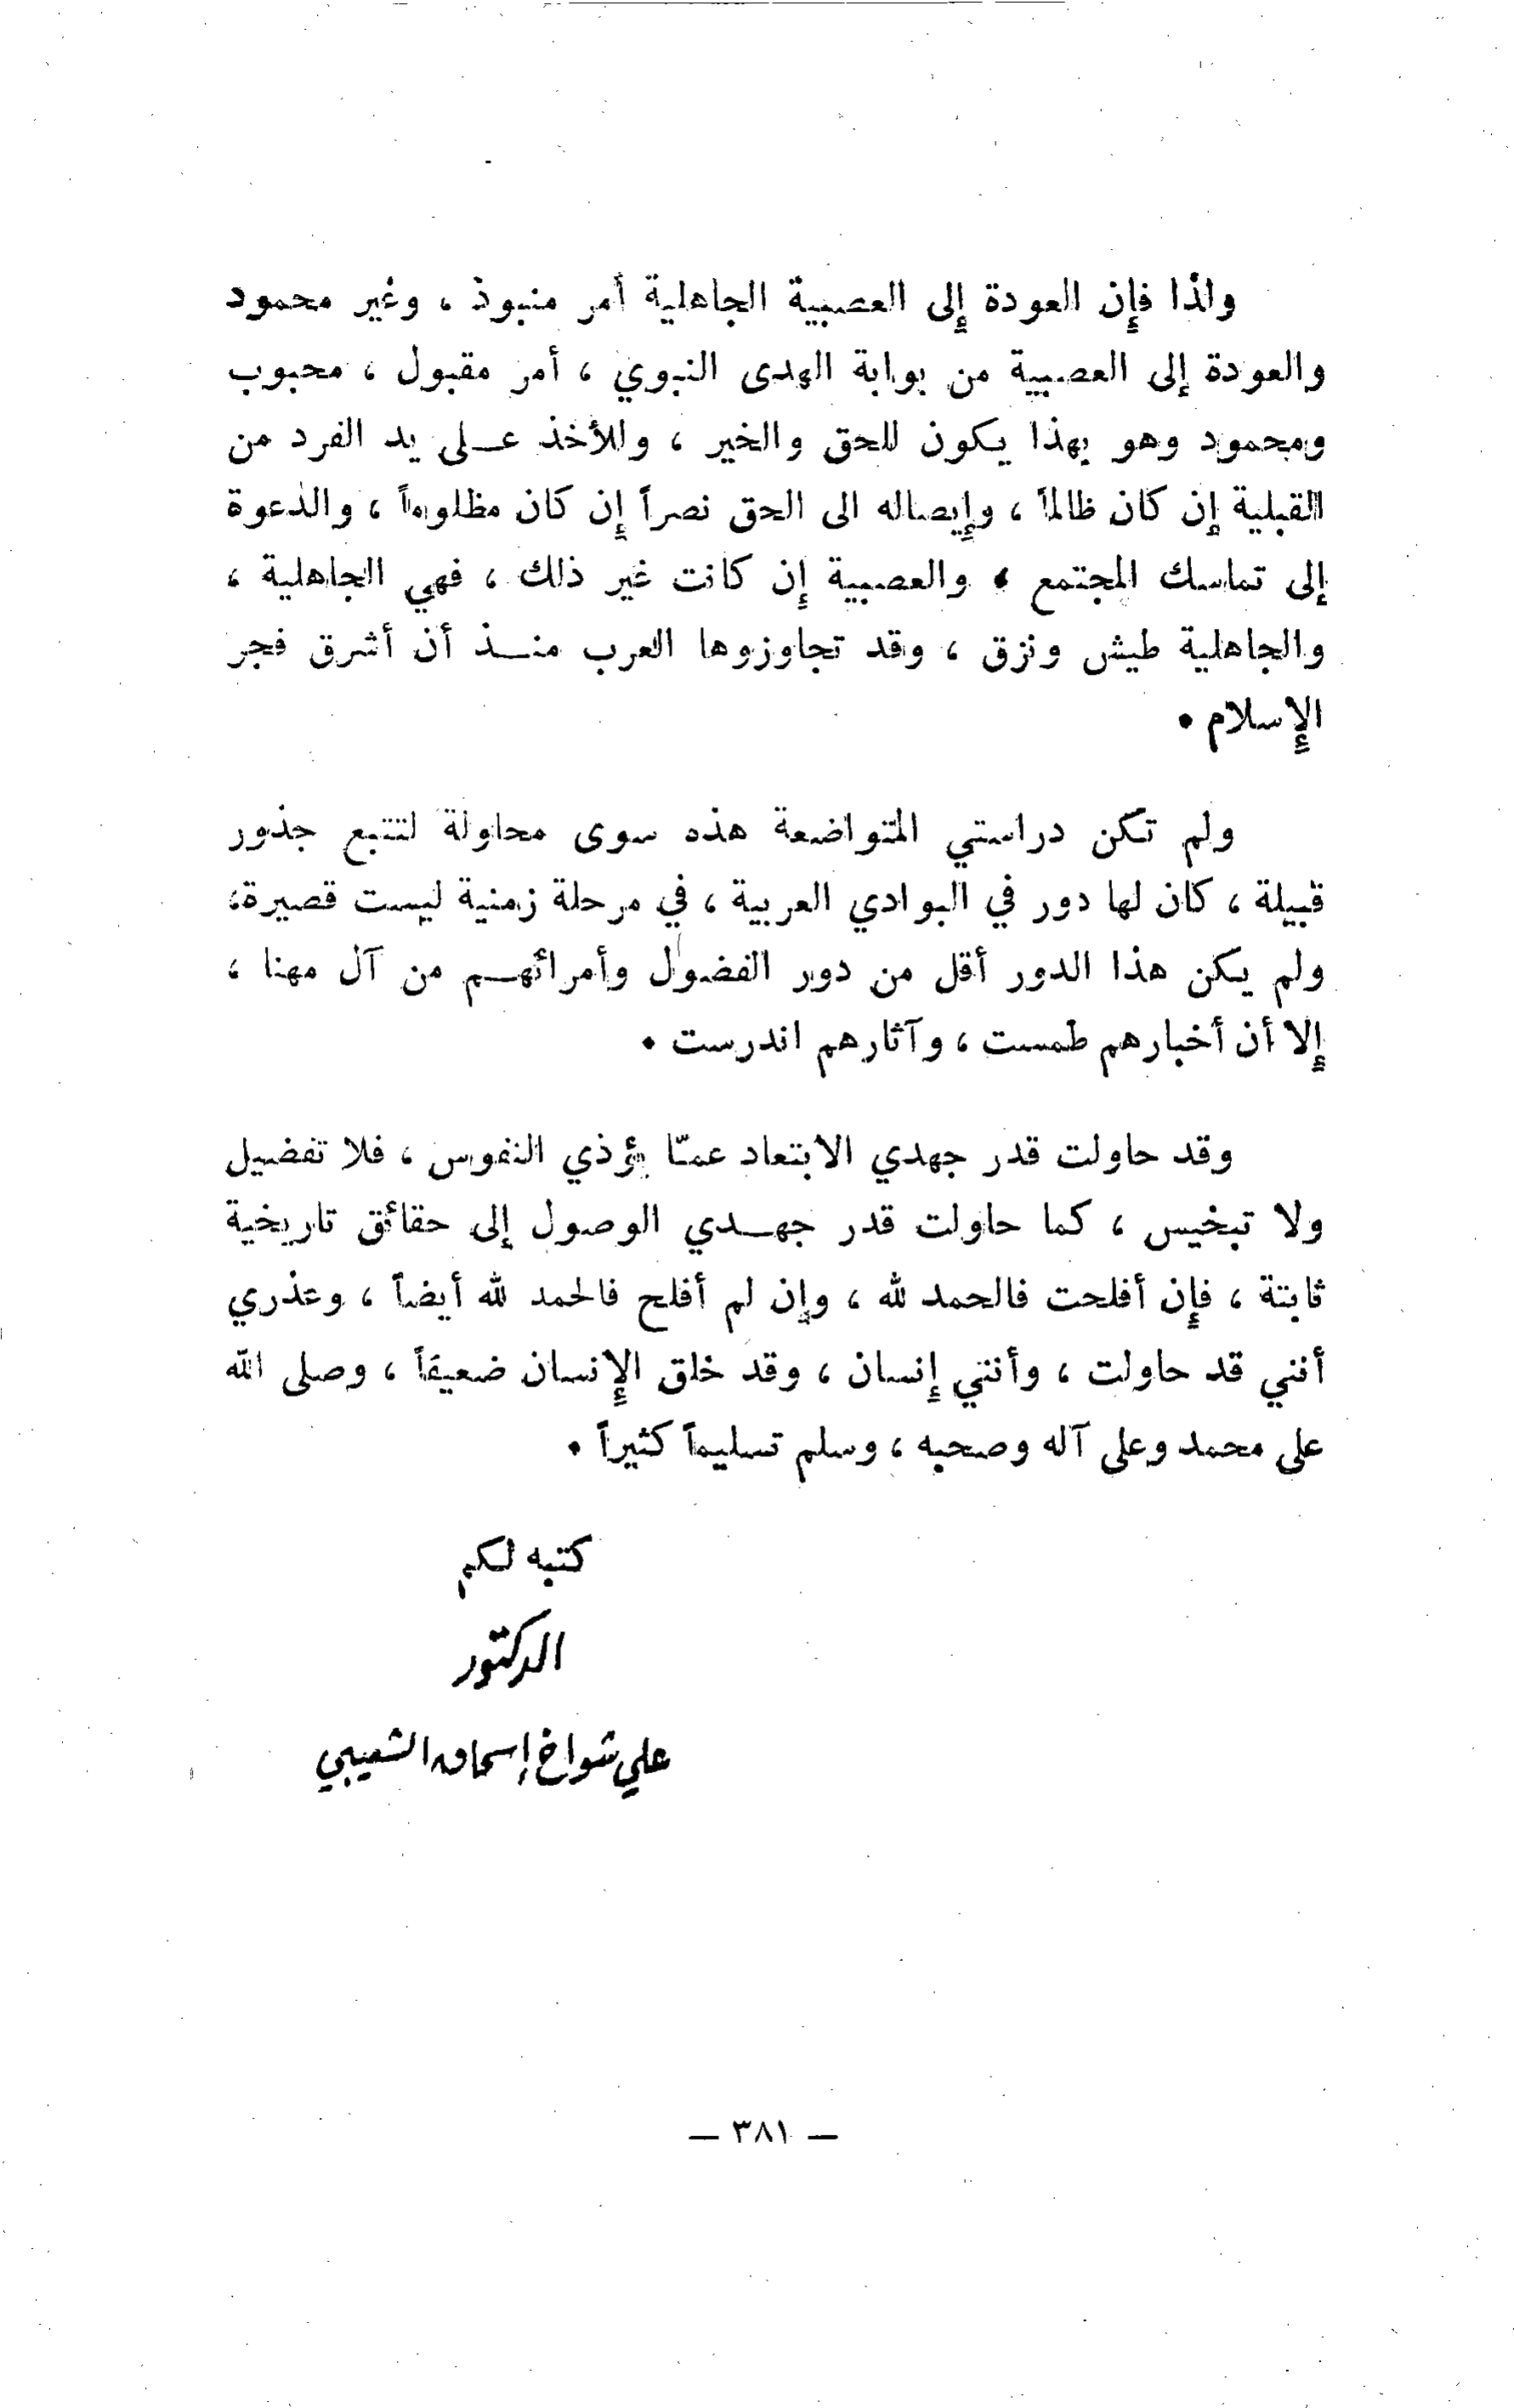 ولذا فإن العودة إلى العصبية الجاهلية أمر منبوذ ، وغير محمود
والعودة إلى العصبية من بوابة الهدى النبوي ، أمر مقبول ، محبوب
ومحمود وهو بهذا يكون للحق والخير ، وللأخذ عـلى يد الفرد من
القبلية إن كان ظالماً ، وإيصاله الى الحق نصراً إن كان مظلوماً ، والدعوة
إلى تماسك المجتمع . والعصبية إن كانت غير ذلك ، فهي الجاهلية ،
والجاهلية طيش ونزق ، وقد تجاوزوها العرب منـذ أن أشرق فجر
الإسلام .
ولم تكن دراستي المتواضعة هذه سوى محاولة لتتبع جذور
قبيلة ، كان لها دور في البوادي العربية ، في مرحلة زمنية ليست قصيرة،
ولم يكن هذا الدور أقل من دور الفضول وأمرائهـم من آل مهنا ،
إلا أن أخبارهم طمست ، وآثارهم اندرست .
وقد حاولت قدر جهدي الابتعاد عمّا يؤذي النفوس ، فلا تفضيل
ولا تبخيس ، كما حاولت قدر جهـدي الوصول إلى حقائق تاريخية
ثابتة ، فإن أفلحت فالحمد لله ، وإن لم أفلح فالحمد لله أيضاً ، وعذري
أنني قد حاولت ، وأنني إنسان ، وقد خلق الإنسان ضعيفاً ، وصلى الله
على محمد وعلى آله وصحبه ، وسلم تسليماً كثيراً .
كتبه لكم
الدكتور
علي شواخ إسحاق الشعيبي
— ٣٨١ —